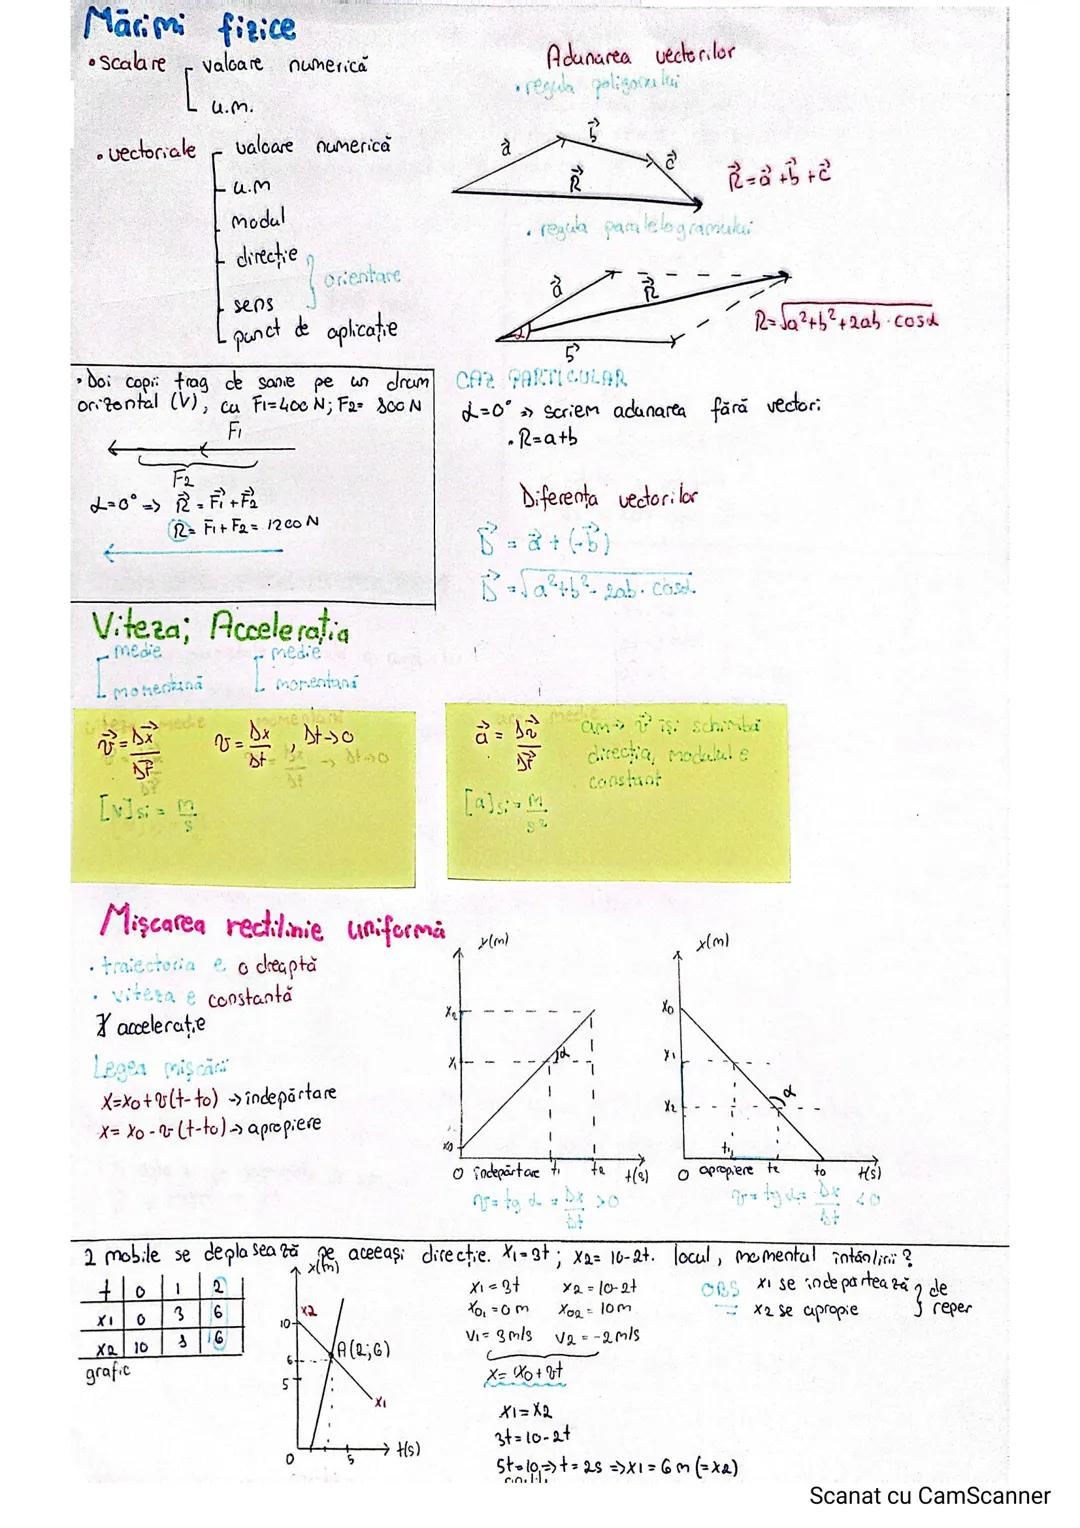 Mărimi fizice
• Scalare
valoare numerică
u.m.
• vectoriale
valoare numerică
u.m
modul
direcție
sens
orientare
punct de aplicație
Adunarea vectorilor
• regula poligonului
a⃗ b⃗ c⃗
R⃗
R⃗=a⃗+b⃗+c⃗
• regula paralelogramului
a⃗ R⃗
α
b⃗
R=√a²+b²+2ab·cosα
• Doi copii trag de sanie pe un drum
orizontal (V), cu F1=400 N; F2= 800 N
F1
F2
α=0° => R⃗ = F⃗1+F⃗2
R= F1+F2= 1200 N
CAZ PARTICULAR
α=0° => scriem adunarea fără vectori
• R=a+b
Diferența vectorilor
D⃗ = a⃗ + (-b⃗)
D⃗ =√a²+b²-2ab·cosα
Viteza; Accelerația
medie
momentană
medie
momentană
v⃗ = Δx⃗/Δt⃗
v = Δx/Δt, Δt→0
[v]Si = m/s
a⃗ = Δv⃗/Δt⃗
am → v⃗ își schimbă
direcția, modulul e
constant
[a]Si = m/s²
Mișcarea rectilinie uniformă
• traiectoria e o dreaptă
• viteza e constantă
∄ accelerație
Legea mișcării
x=x0+v(t-t0) → îndepărtare
x= x0-v(t-t0) → apropiere
x(m)
x2
x1
x0
α
0 îndepărtare t1 t2 t(s)
v= tg α = Δx/Δt >0
x(m)
x0
x1
x2
α
t1
0 apropiere t2 t0 t(s)
v= tg α= Δx/Δt <0
2 mobile se deplasează pe aceeași direcție. x1=3t; x2= 10-2t. locul, momentul întâlnirii?
t 0 1 2
x1 0 3 6
x2 10 3 6
grafic
x(m)
x2
10
A(2;6)
6
5
x1
0 5 t(s)
x1=3t x2=10-2t
x01=0m x02=10m
v1=3m/s v2=-2m/s
x= x0+vt
x1=x2
3t=10-2t
5t=10 => t=2s => x1=6m (=x2)
OBS x1 se îndepărtează
x2 se apropie
de
reper
Scanat cu CamScanner